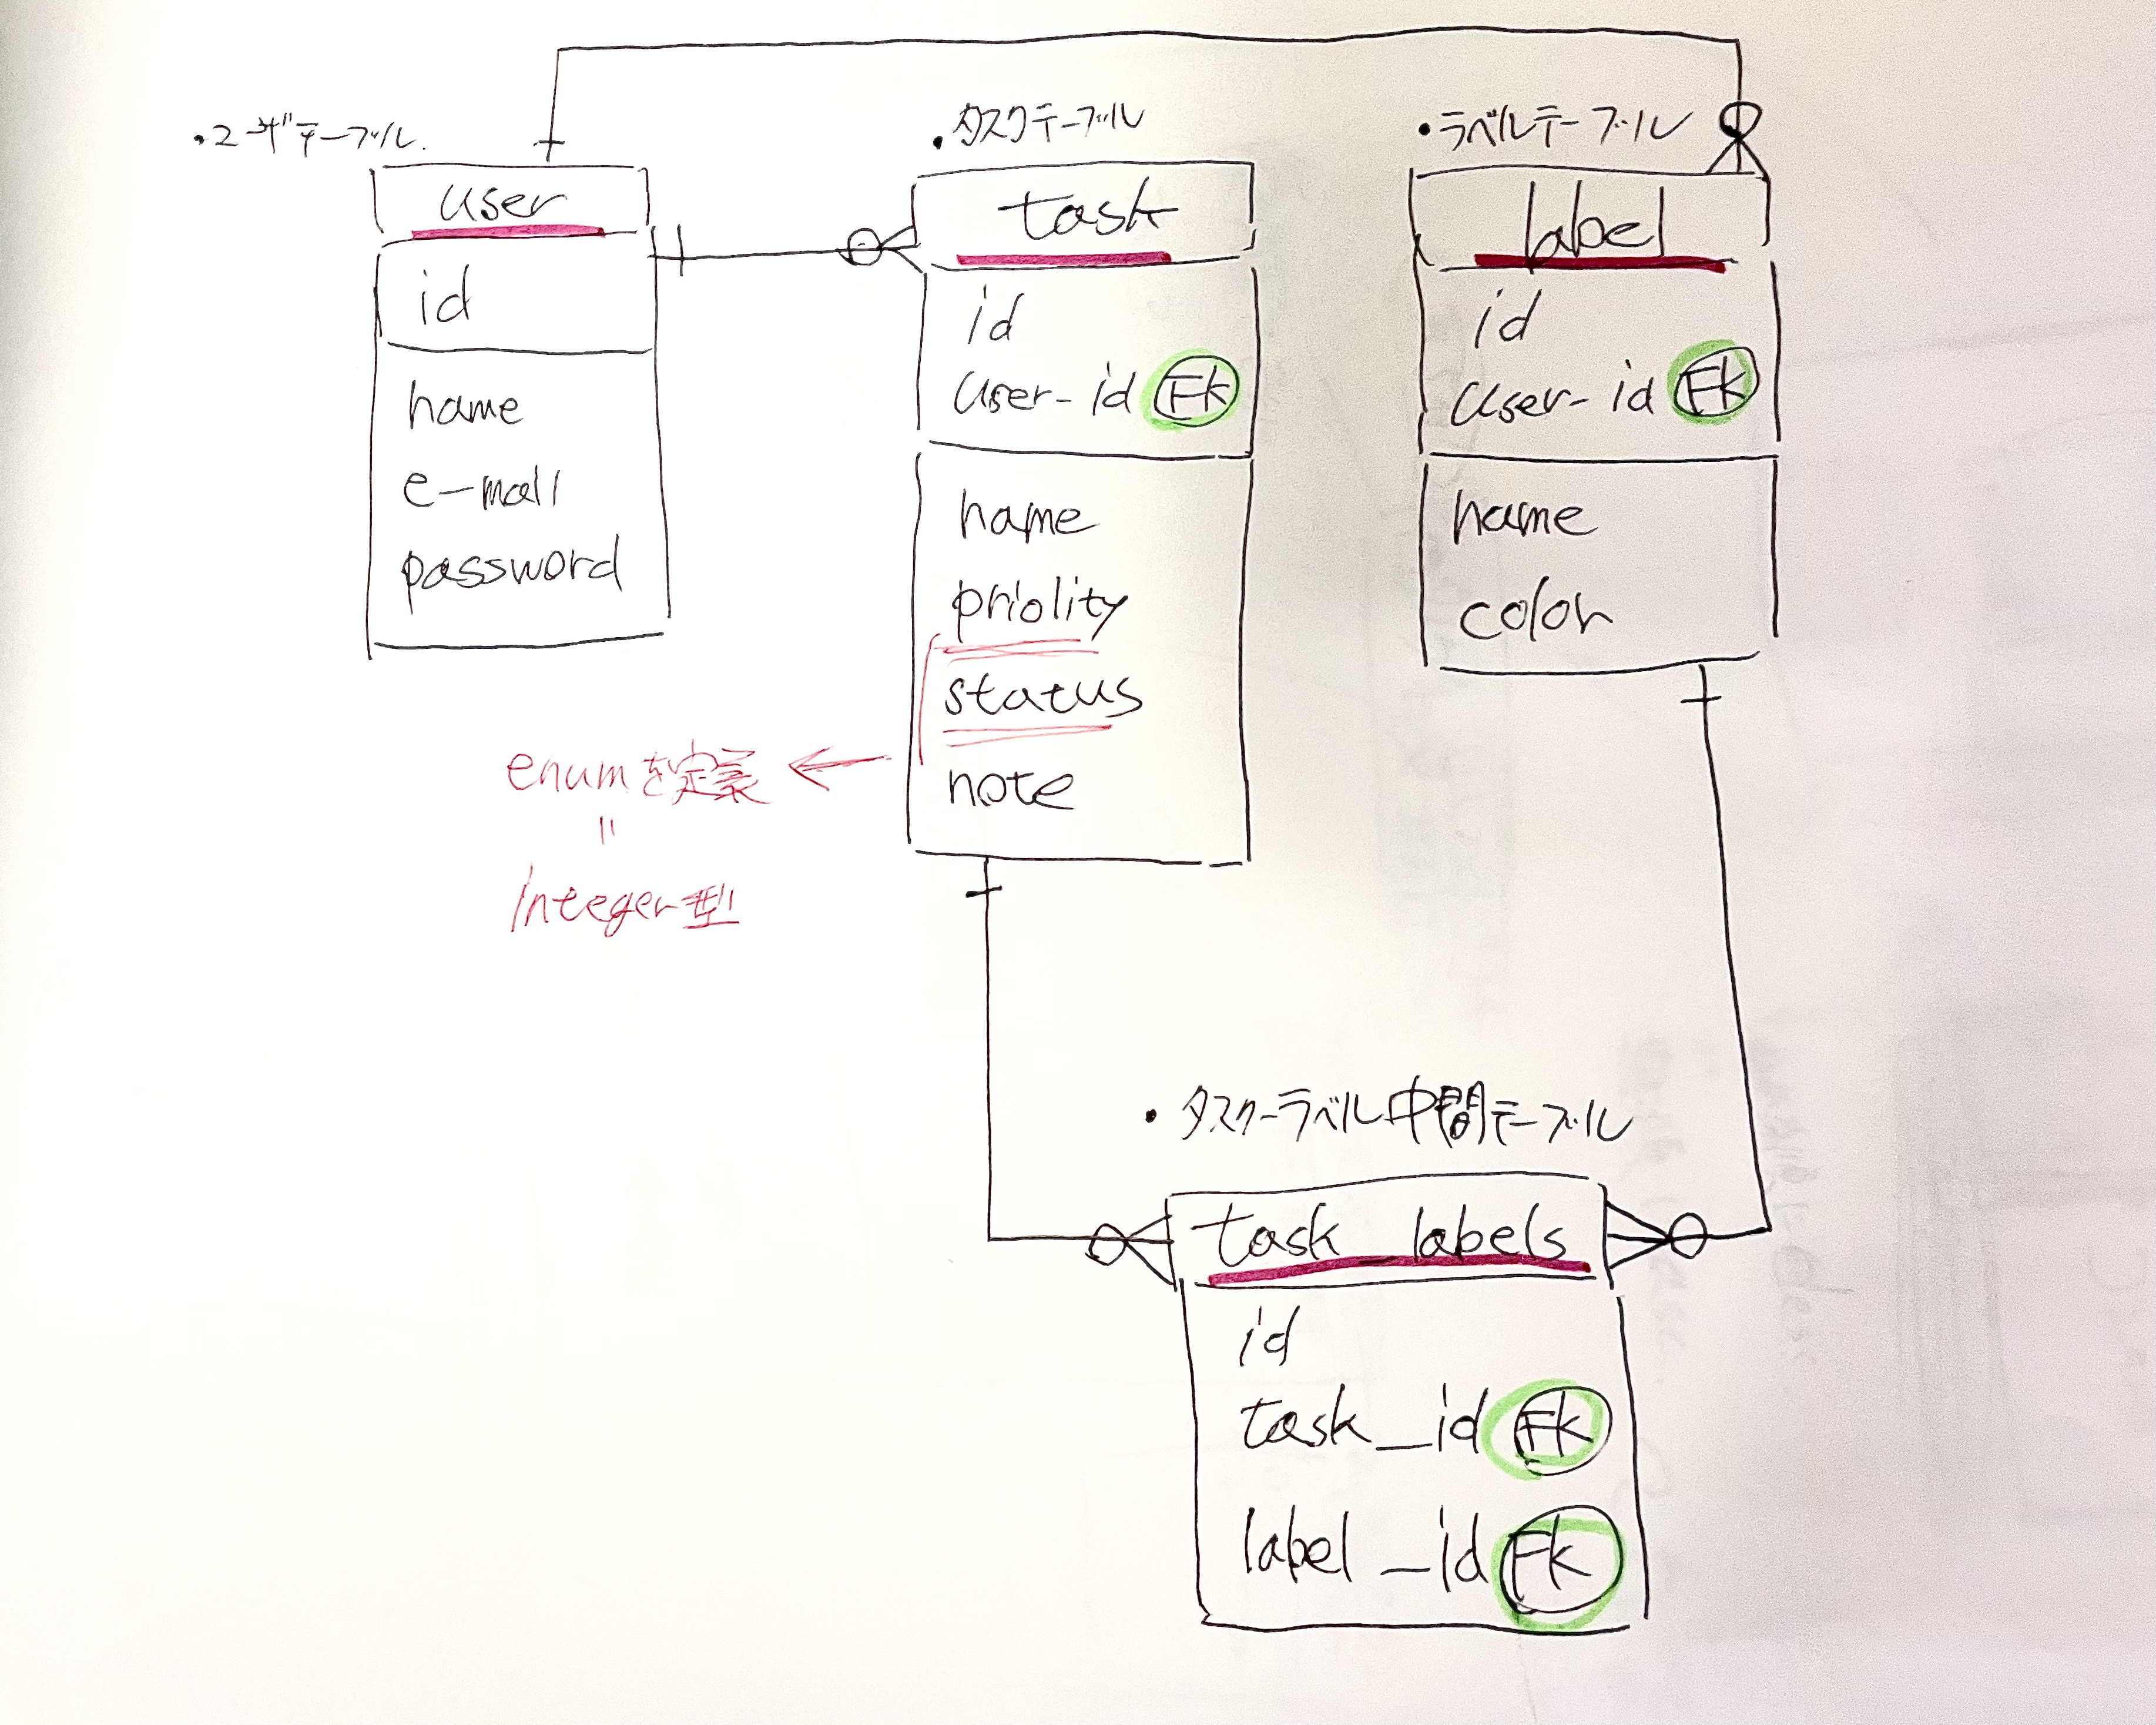 ・ユーザテーブル.
user
id
name
e-mail
password
・タスクテーブル
task
id
user-id FK
name
priolity
status
note
enumを定義
〃
Integer型
・ラベルテーブル
label
id
user-id FK
name
color
・タスクーラベル中間テーブル
task labels
id
task_id FK
label_id FK